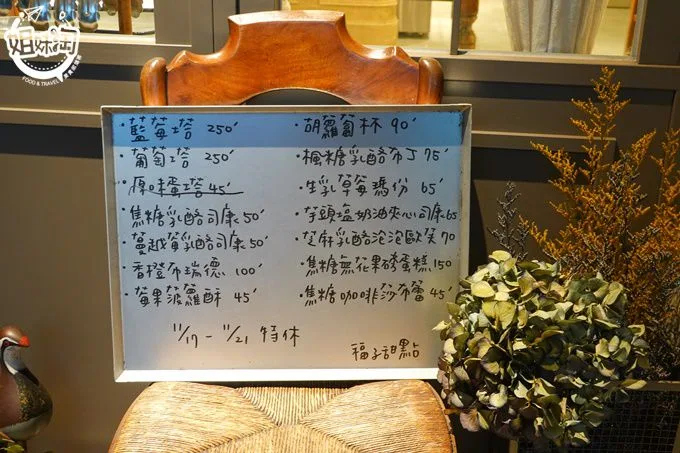 姐妹淘
FOOD & TRAVEL
・藍莓塔 250'
・葡萄塔 250'
・原味蛋塔 45'
・焦糖乳酪司康 50'
・蔓越莓乳酪司康 50'
・香橙布瑞德 100'
・莓果菠蘿酥 45'
・胡蘿蔔杯 90'
・楓糖乳酪布丁 75'
・生乳草莓瑪份 65'
・芋頭塩奶油夾心司康 65
・芝麻乳酪泡泡歐芙 70
・焦糖無花果磅蛋糕 150
・焦糖咖啡莎布蕾 45'
11/17 - 11/21 特休
福子甜點